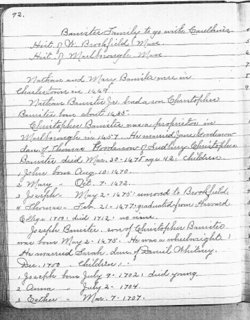 72.
Banister Family to go with
Hist. of N. Brookfield, Mass
Hist. of Marlborough, Mass
Nathan and Mary Banister were in
Charlestown in
Nathan Banister Jr. had a son Christopher
Banister born about
Christopher Banister was a proprietor in
Marlborough in 1657. He married Jane Goodenow
dau. of Thomas Goodenow of Sudbury. Christopher
Banister died Mar. 30-1678 age 42. children
1 John born Aug. 10-1670.
2 Mary " Oct. 9-1672.
3 Joseph " May 2-1675 removed to Brookfield.
4 Thomas " Feb. 21-1677 graduated from Harvard
College 1700: died 1712: no issue.
Joseph Banister, son of Christopher Banister
was born May 2-1675. He was a wheelwright
He married Sarah, dau. of Daniel Whitney.
Dec. Children:-
1 Joseph born July 9-1702: died young
2 Anna " July 2-1704
3 Esther " Mar. 7-1707.